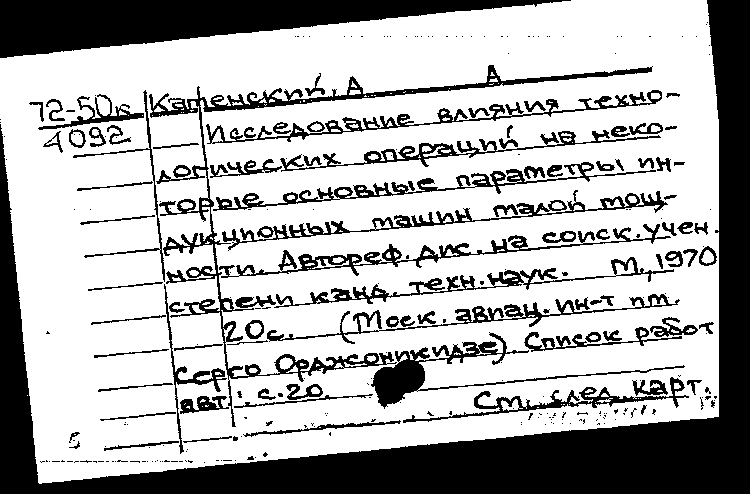 72-50к Каменский, А А
4092 Исследование влияния техно-
логических операций на неко-
торые основные параметры ин-
дукционных машин малой мощ-
ности. Автореф. дис. на соиск. учен.
степени канд. техн. наук. М., 1970
20с. (Моск. авиац. ин-т им.
Серго Орджоникидзе). Список работ
авт.: с.20.
См. след. карт.